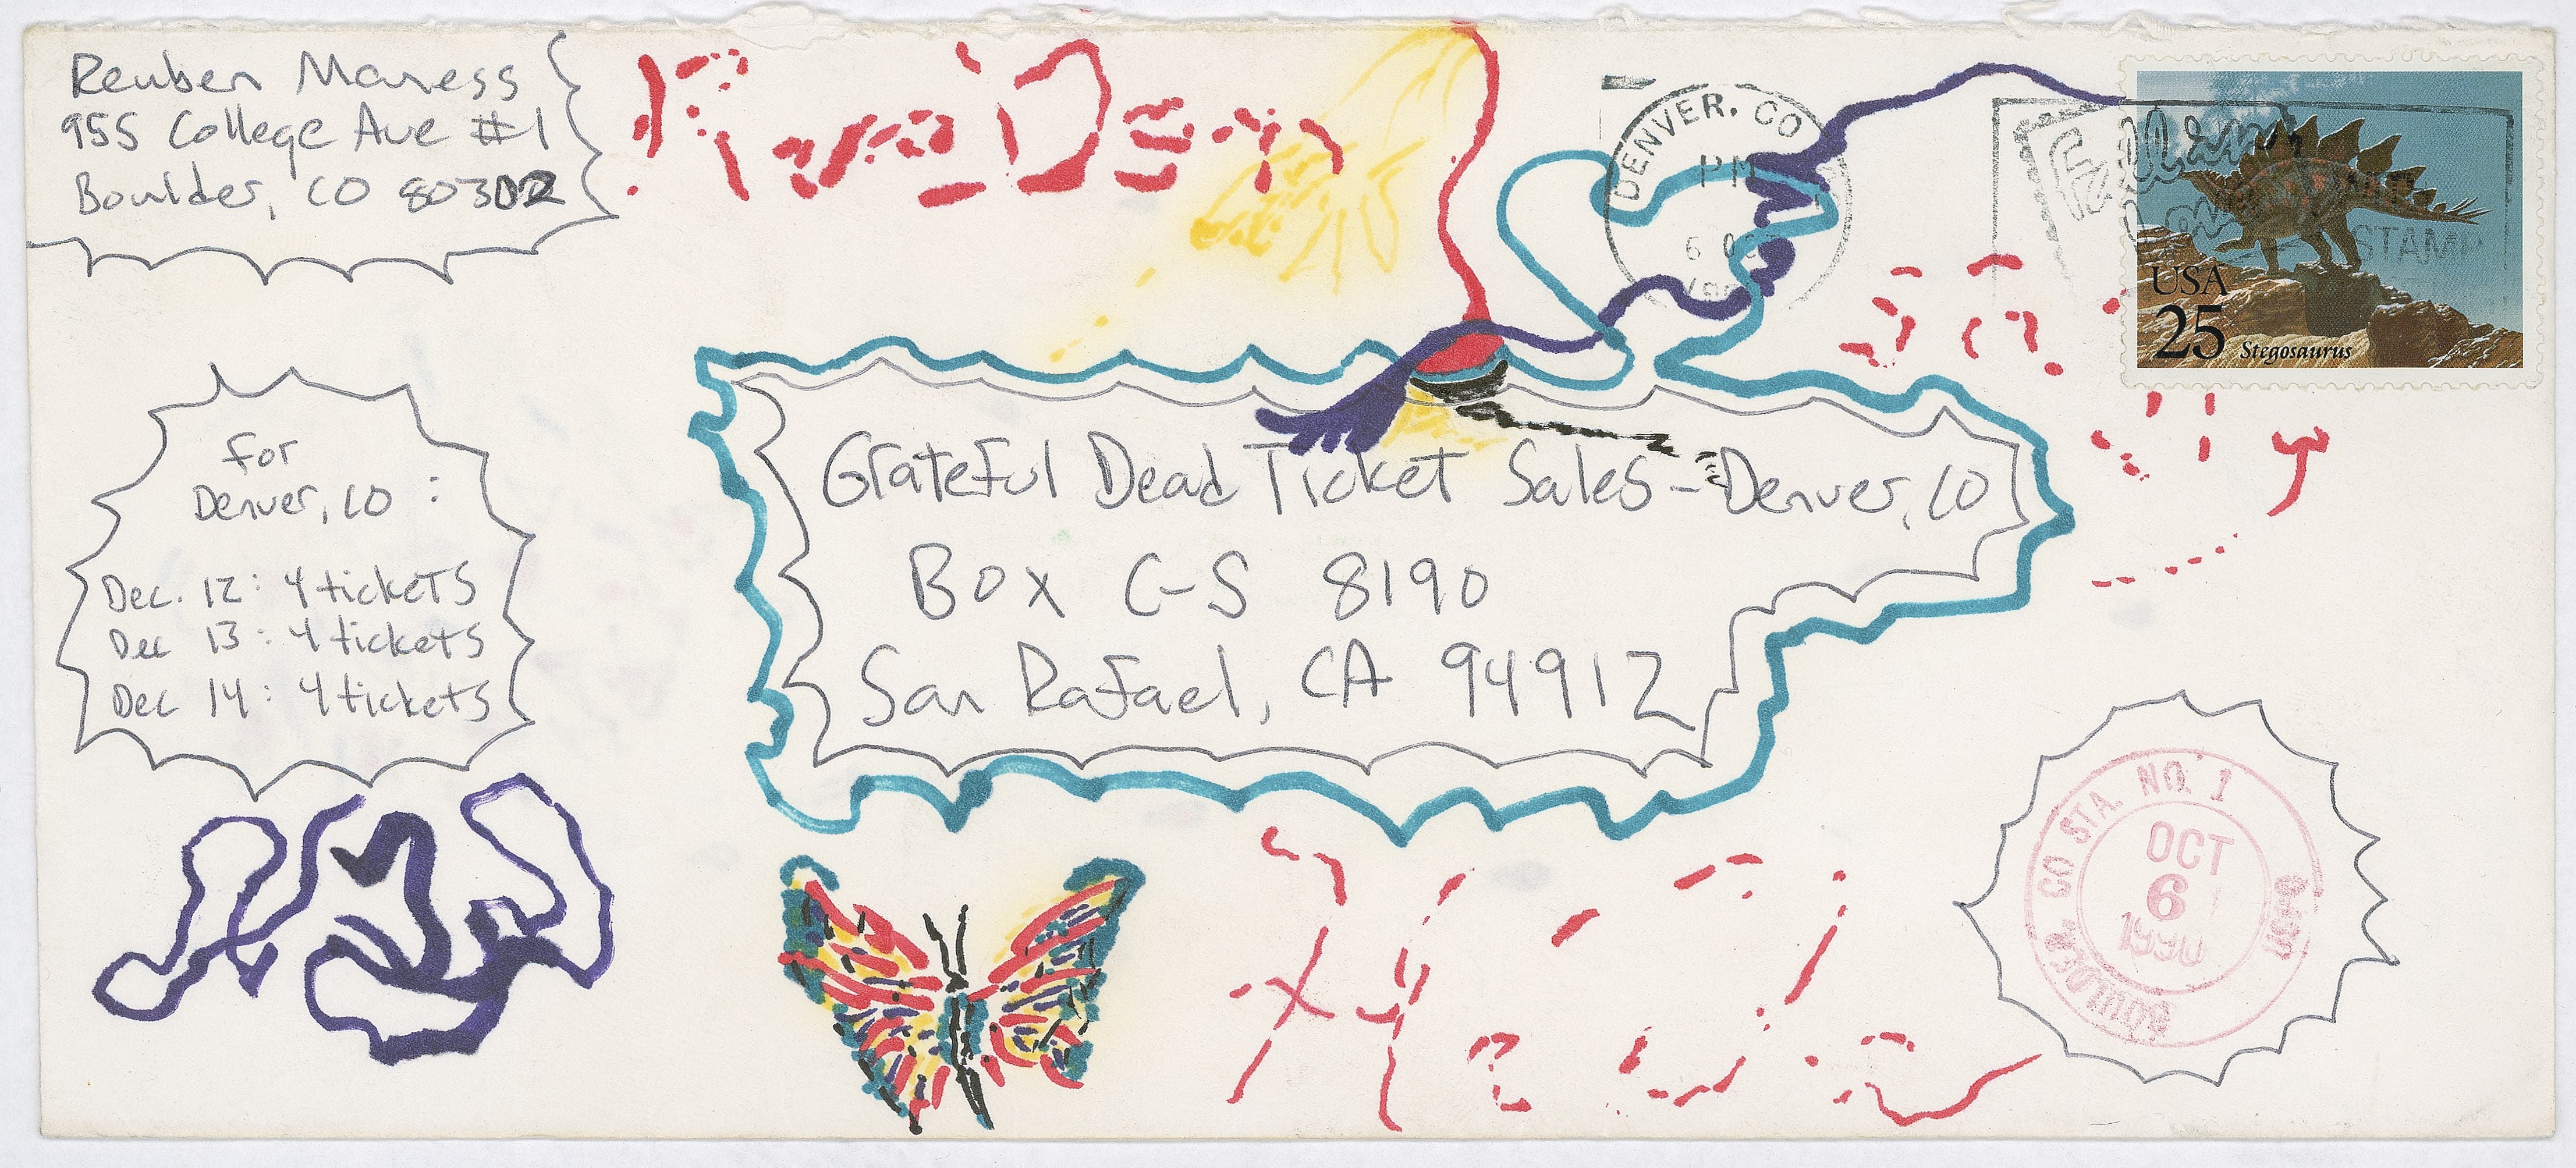 Reuben Maness
955 College Ave #1
Boulder, CO 80302
DENVER, CO
PM
6 OCT
Fall in
Love
STAMP
USA
25
Stegosaurus
for
Denver, CO :
Dec. 12: 4 tickets
Dec 13: 4 tickets
Dec 14: 4 tickets
Grateful Dead Ticket Sales - Denver, CO
Box C-S 8190
San Rafael, CA 94912
BOULDER, CO STA. NO. 1
OCT
6
1990